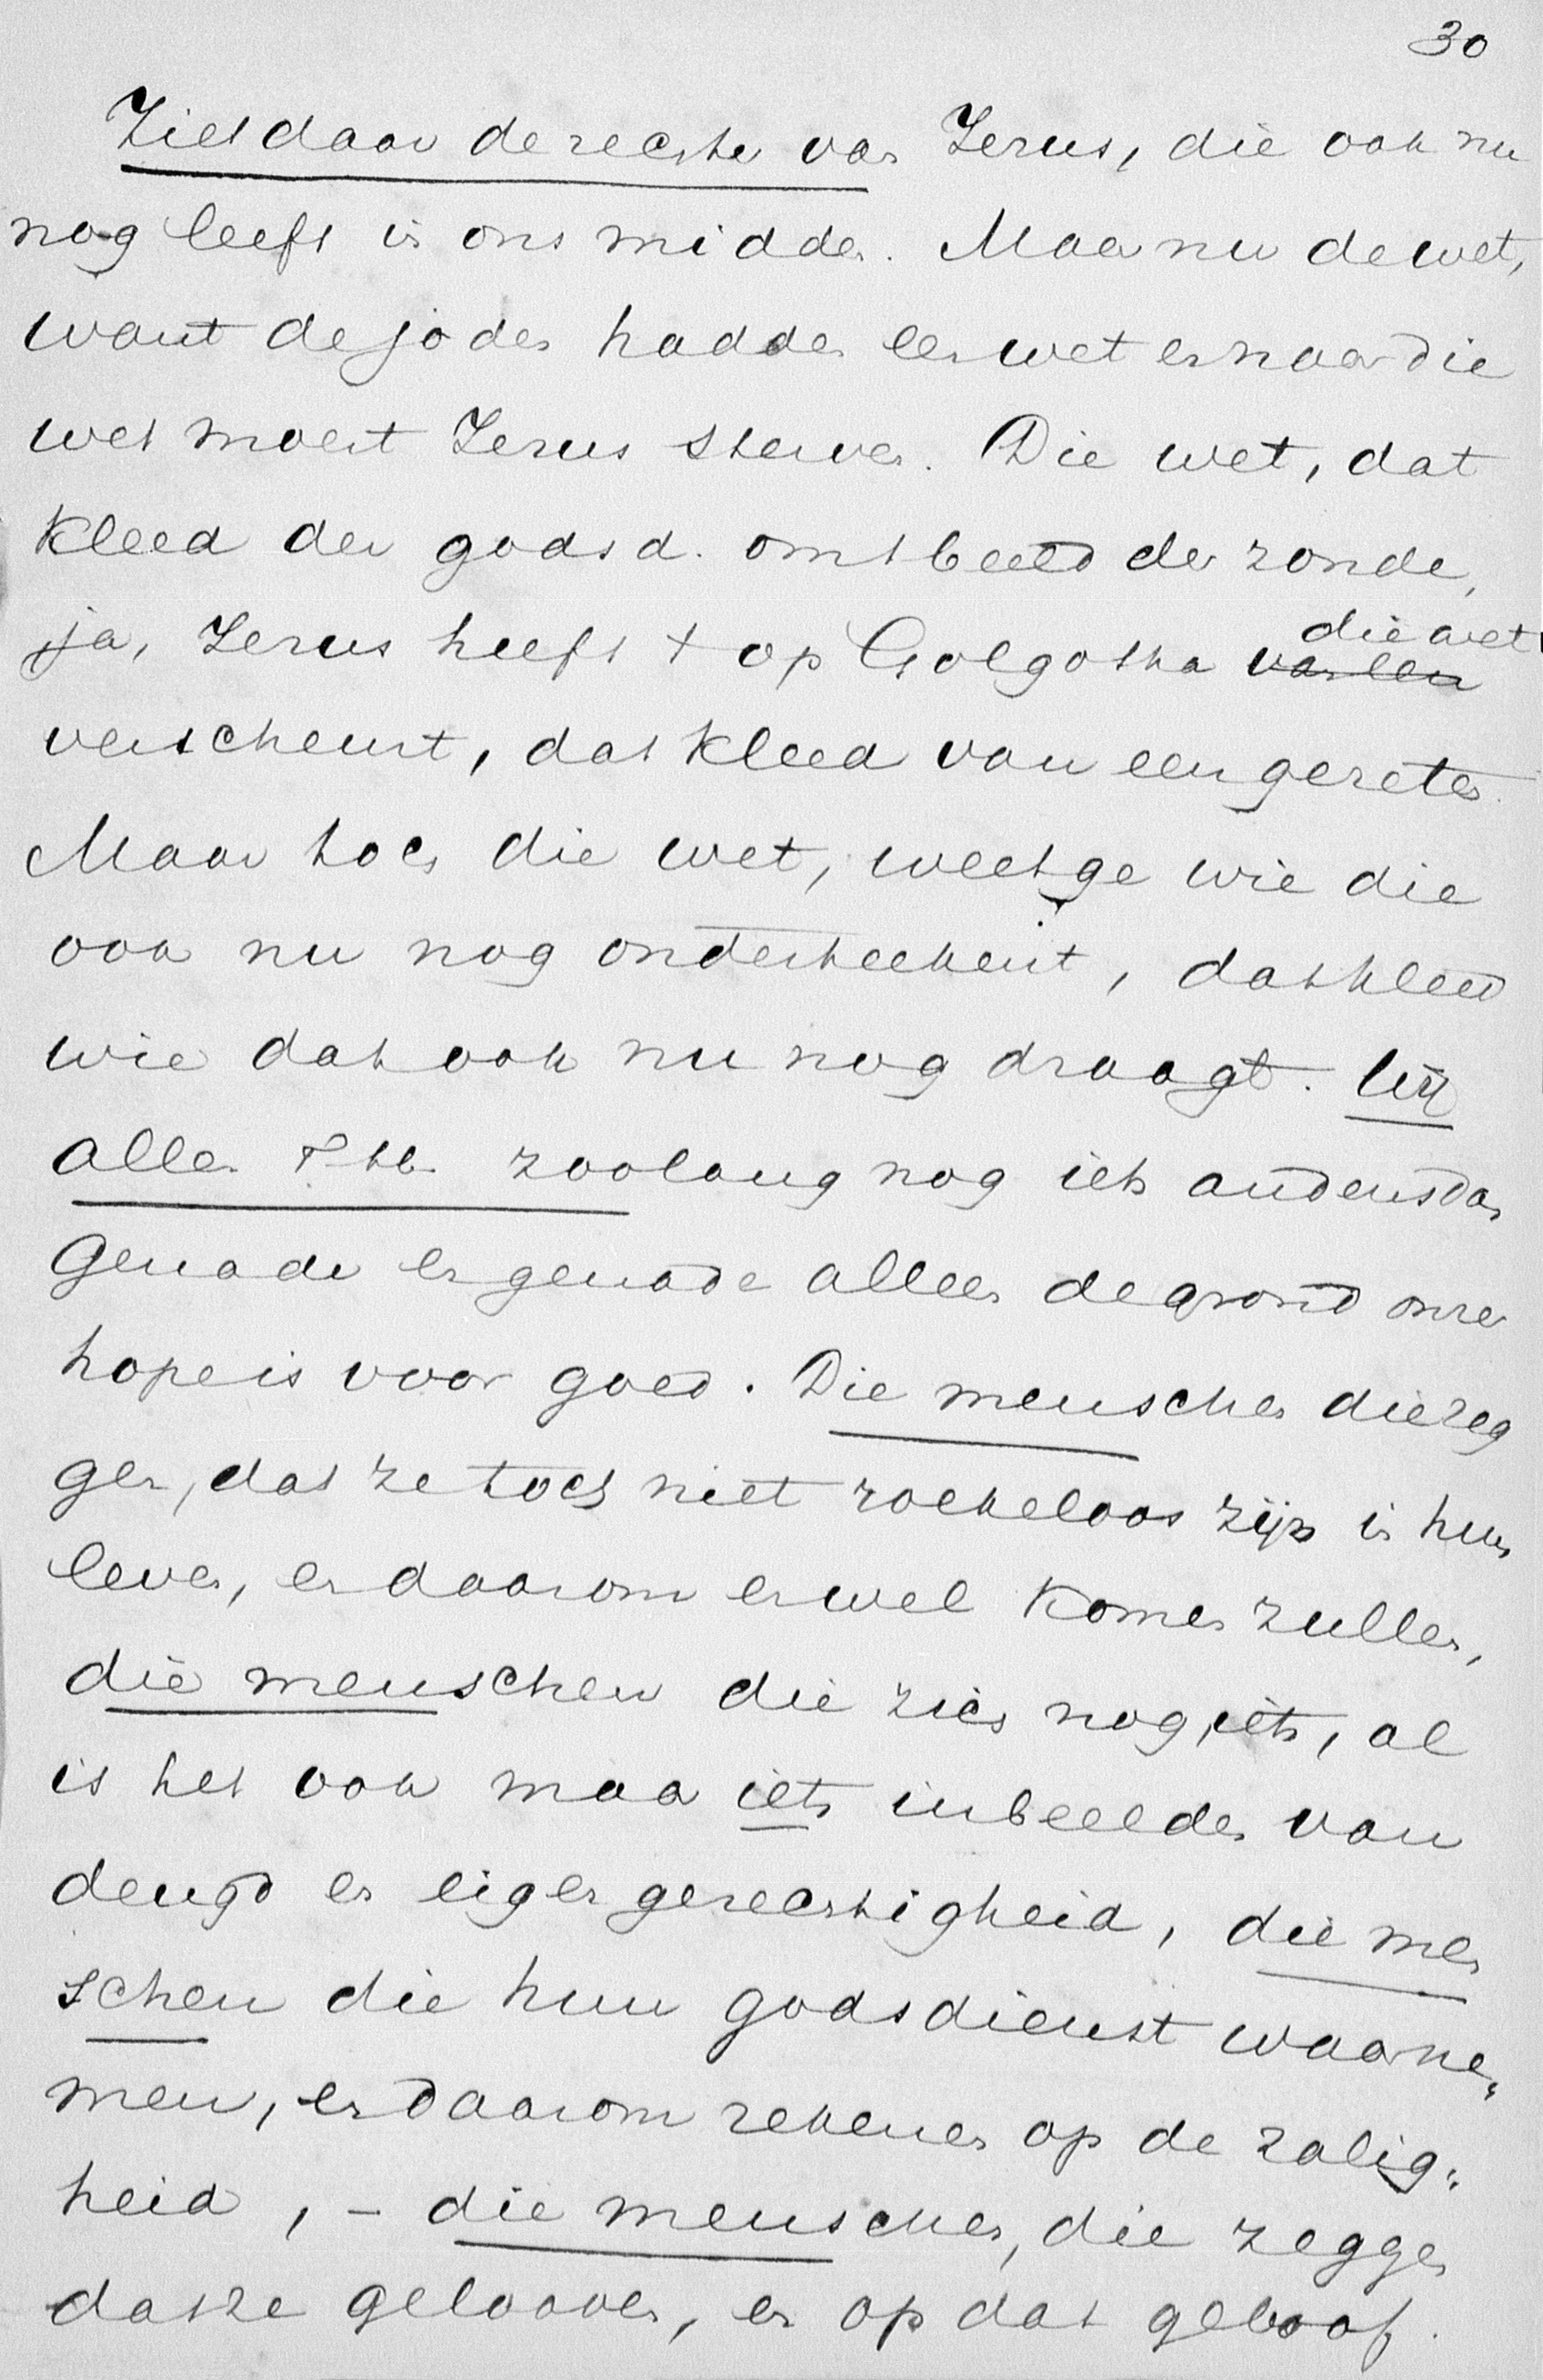 30
Ziet daar de rechter van Jezus, die ook nu
nog leeft in ons midden. Maar nu de wet,
want de joden hadden een wet en naar die
wet moest Jezus sterven. Die wet, dat
kleed der godsd. om 't beeld der zonde,
ja, Jezus heeft t op Golgotha van een die wet
verscheurt, dat kleed van een gereten.
Maar toch die wet, weet ge wie die
ook nu nog onderteekent, dat kleed
wie dat ook nu nog draagt. Wij
allen zoolang nog iets anders dan
genade en genade alleen de grond onzer
hope is voor goed. Die menschen die zeg
gen, dat ze toch niet roekeloos zijn in hun
leven, en daarom er wel komen zullen,
die menschen die zich nog iets, al
is het ook maar iets inbeelden van
deugd en eigengerechtigheid, die men
schen die hun godsdienst waarne„
men, en daarom rekenen op de zalig„
heid, – die menschen, die zeggen
dat ze gelooven, en op dat geloof.